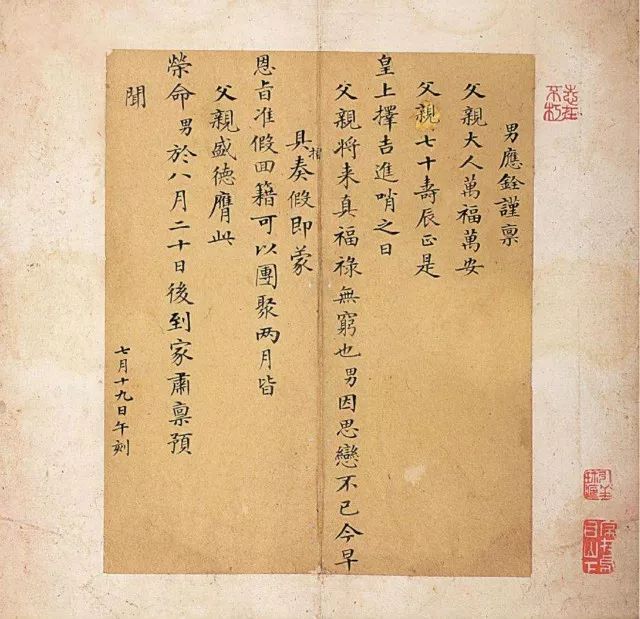 男應銓謹禀
父親大人萬福萬安
父親七十壽辰正是
皇上擇吉進哨之日
父親将来真福祿無窮也男因思戀不已今早
具摺奏假即蒙
恩旨准假囬籍可以團聚两月皆
父親盛德膺此
榮命男於八月二十日後到家肅禀預
聞
七月十九日午刻
志在不朽
家在烏目山下